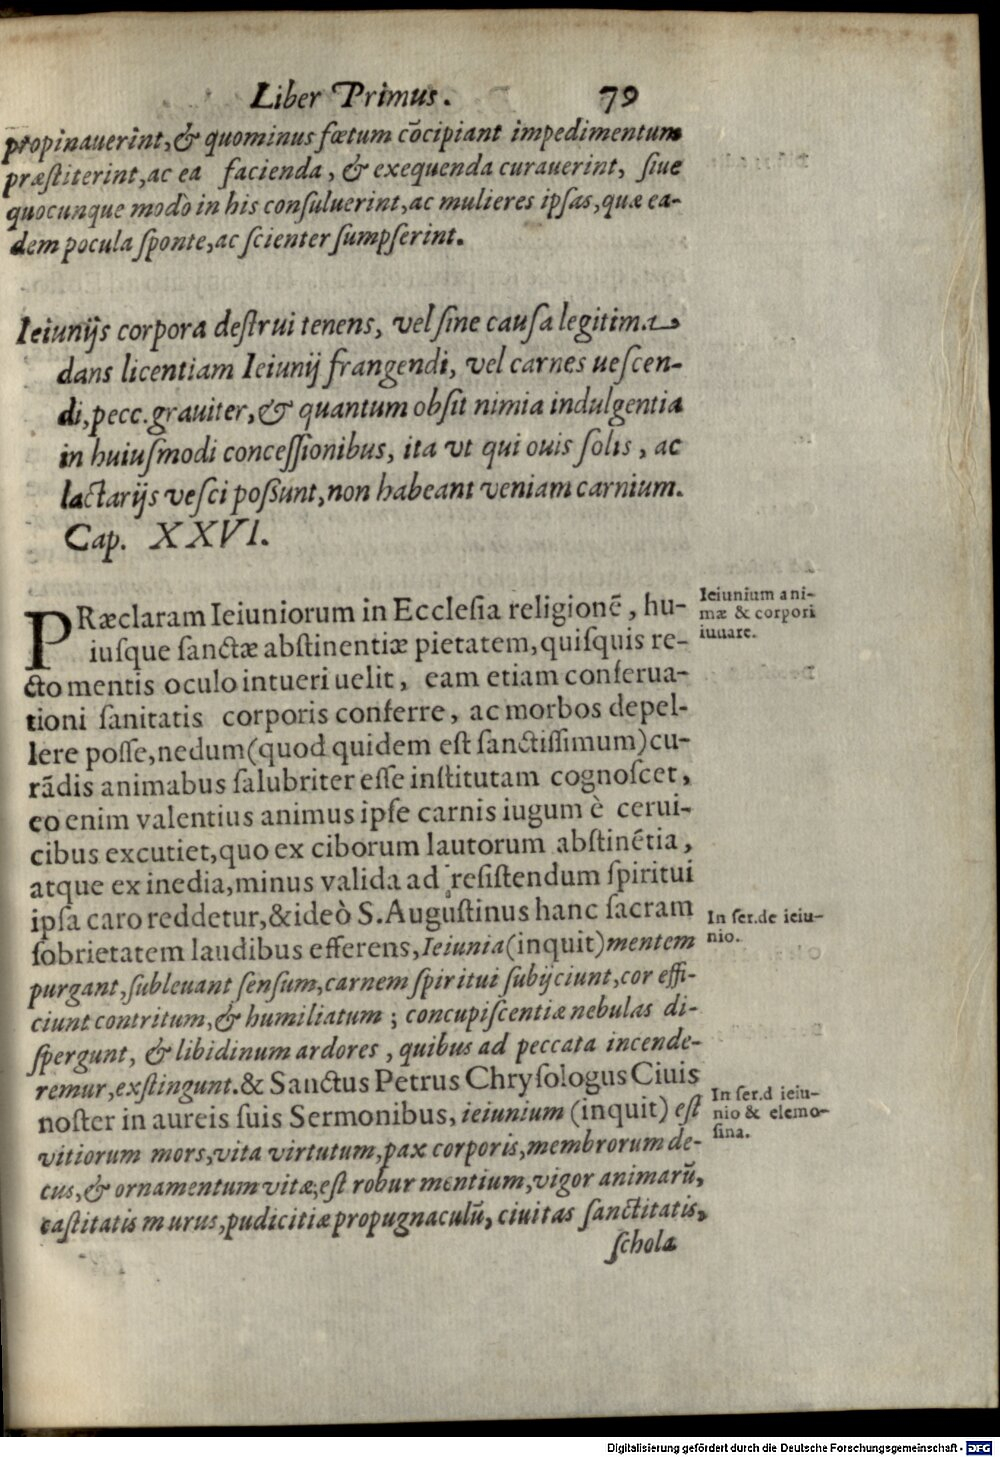 Liber Primus. 79
propinauerint, & quominus fœtum cōcipiant impedimentum
præſtiterint, ac ea facienda, & exequenda curauerint, ſiue
quocunque modò in his conſuluerint, ac mulieres ipſas, quæ ea-
dem pocula ſponte, ac ſcienter ſumpſerint.
Ieiunijs corpora deſtrui tenens, vel ſine cauſa legitima
dans licentiam Ieiunij frangendi, vel carnes ueſcen-
di, pecc. grauiter, & quantum obſit nimia indulgentia
in huiuſmodi conceſſionibus, ita vt qui ouis ſolis, ac
lactarijs veſci poßunt, non habeant veniam carnium.
Cap. XXVI.
PRæclaram Ieiuniorum in Eccleſia religionē, hu-
iuſque ſanctæ abſtinentiæ pietatem, quiſquis re-
cto mentis oculo intueri uelit, eam etiam conſerua-
tioni ſanitatis corporis conferre, ac morbos depel-
lere poſſe, nedum (quod quidem eſt ſanctiſſimum) cu-
rādis animabus ſalubriter eſſe inſtitutam cognoſcet,
eo enim valentius animus ipſe carnis iugum è cerui-
cibus excutiet, quo ex ciborum lautorum abſtinētia,
atque ex inedia, minus valida ad reſiſtendum ſpiritui
ipſa caro reddetur, & ideò S. Auguſtinus hanc ſacram
ſobrietatem laudibus efferens, Ieiunia (inquit) mentem
purgant, ſubleuant ſenſum, carnem ſpiritui ſubijciunt, cor effi-
ciunt contritum, & humiliatum; concupiſcentiæ nebulas di-
ſpergunt, & libidinum ardores, quibus ad peccata incende-
remur, exſtingunt. & Sanctus Petrus Chryſologus Ciuis
noſter in aureis ſuis Sermonibus, ieiunium (inquit) eſt
vitiorum mors, vita virtutum, pax corporis, membrorum de-
cus, & ornamentum vitæ, eſt robur mentium, vigor animarū,
caſtitatis murus, pudicitiæ propugnaculū, ciuitas ſanctitatis,
ſchola
Ieiunium ani-
mæ & corpori
iuuare.
In ſer. de ieiu-
nio.
In ſer. d ieiu-
nio & elemo-
ſina.
Digitalisierung gefördert durch die Deutsche Forschungsgemeinschaft - DFG